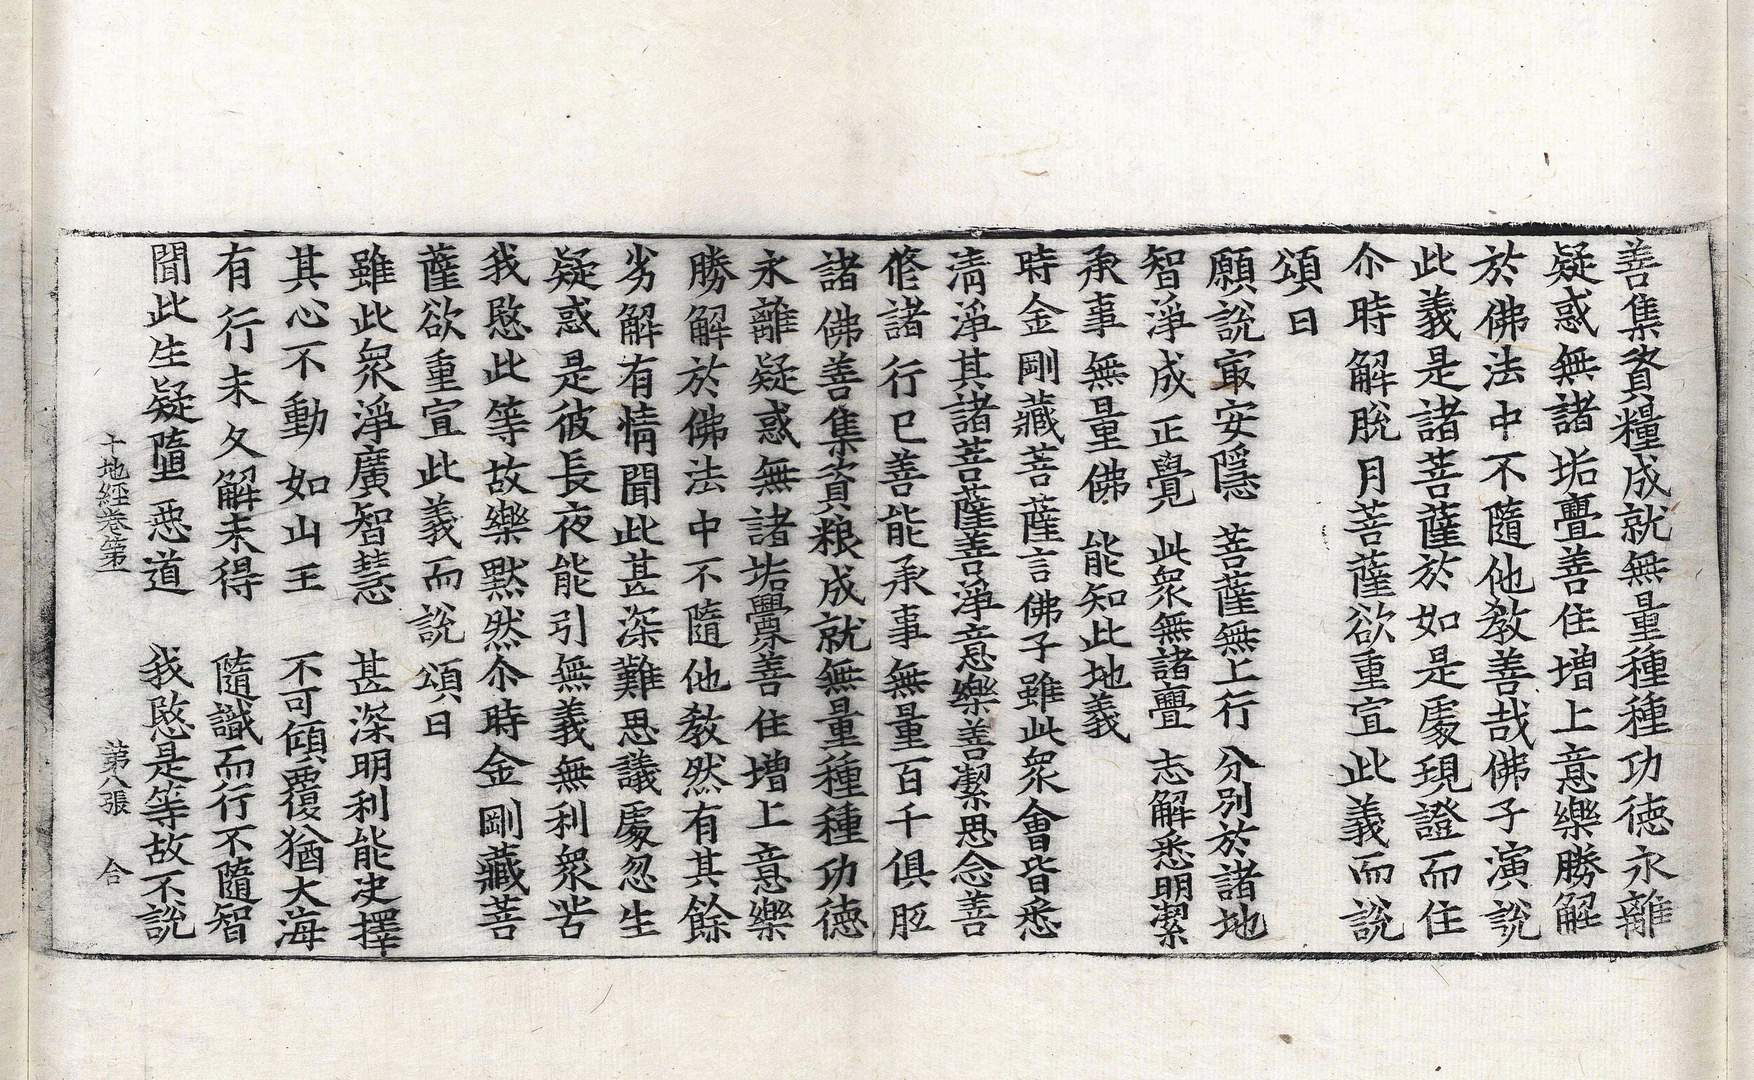 善集資糧成就無量種種功徳永離
疑惑無諸垢亹善住增上意樂勝解
於佛法中不隨他教善哉佛子演說
此義是諸菩薩於如是處現證而住
尒時解脫月菩薩欲重宣此義而說
頌曰
願說㝡安隱　菩薩無上行　分別於諸地
智淨成正覺　此衆無諸亹　志解悉明潔
承事無量佛　能知此地義
時金剛藏菩薩言佛子雖此衆會皆悉
清淨其諸菩薩善淨意樂善潔思念善
修諸行已善能承事無量百千俱胝
諸佛善集資粮成就無量種種功徳
永離疑惑無諸垢釁善住增上意樂
勝解於佛法中不隨他教然有其餘
劣解有情聞此甚深難思議處忽生
疑惑是彼長夜能引無義無利衆苦
我愍此等故樂默然尒時金剛藏菩
薩欲重宣此義而說頌曰
雖此衆淨廣智慧　甚深明利能决擇
其心不動如山王　不可傾覆猶大海
有行未久解未得　隨識而行不隨智
聞此生疑墮惡道　我愍是等故不說
十地經卷第一　第八張　合